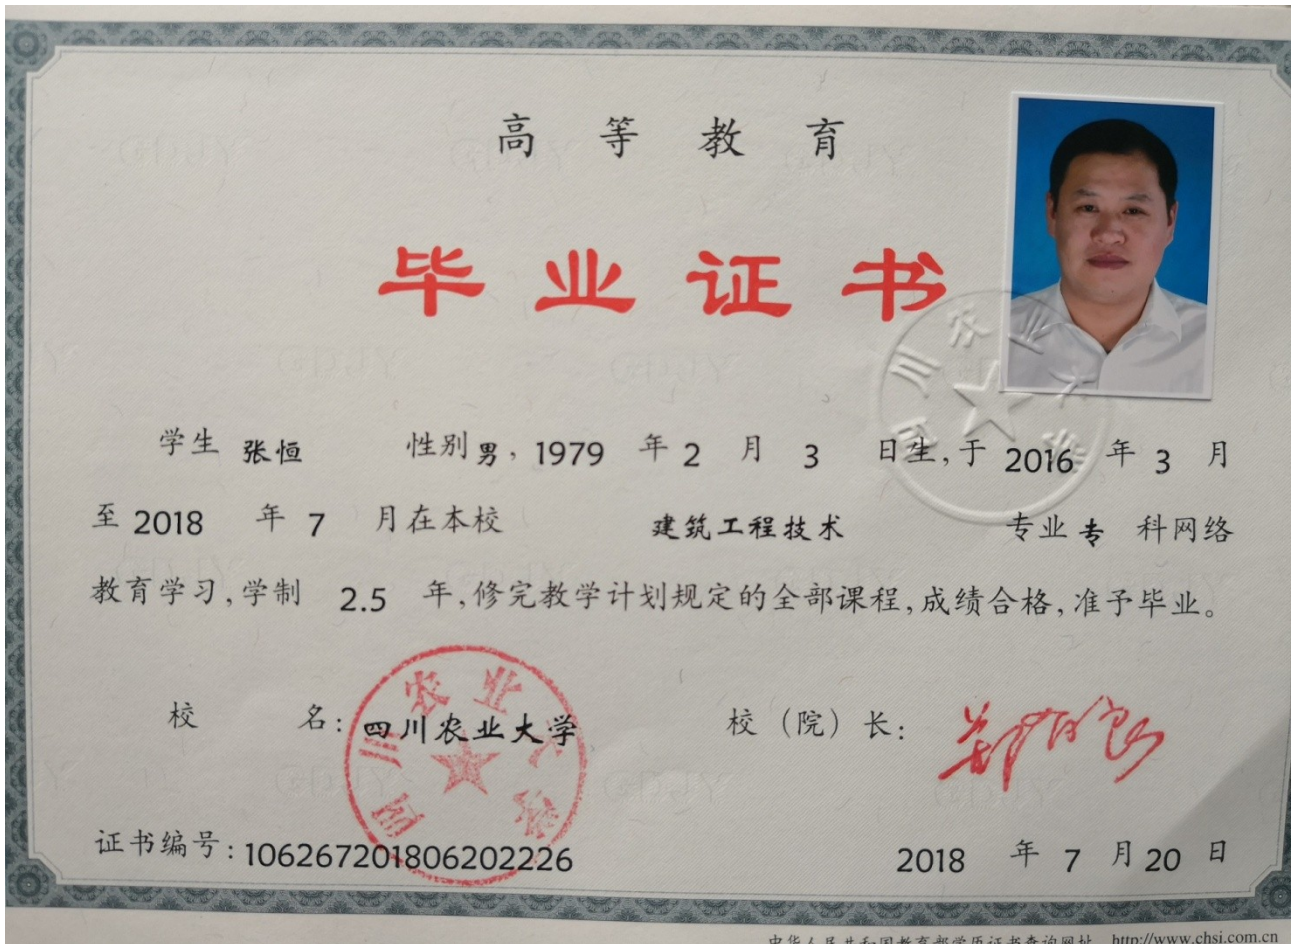 高等教育
毕业证书
学生 张恒 性别 男, 1979 年 2 月 3 日生, 于 2016 年 3 月
至 2018 年 7 月在本校 建筑工程技术 专业 专 科网络
教育学习, 学制 2.5 年, 修完教学计划规定的全部课程, 成绩合格, 准予毕业。
四川农业大学
校 名: 四川农业大学 校（院）长:
四川农业大学
证书编号: 106267201806202226 2018 年 7 月 20 日
中华人民共和国教育部学历证书查询网址 http://www.chsi.com.cn